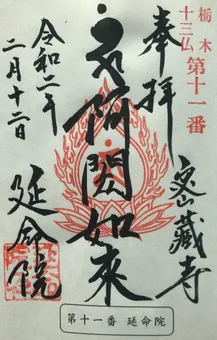 栃木
十三仏 第十一番
奉拝
密蔵寺
阿閦如来
令和二年
二月十二日
延命院
第十一番 延命院